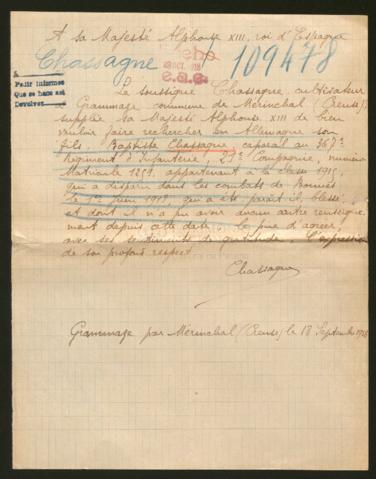 A sa Majesté Alphonse XIII, roi d'Espagne
Chassagne 109478
e.a.e.
Pedir informes
Que se hace así
Devolver
Le soussigné Chassagne, cultivateur
Grammage commune de Mérinchal (Creuse)
supplie sa Majesté Alphonse XIII de bien
vouloir faire rechercher en Allemagne son
fils, Baptiste Chassagne, caporal au 367e
Régiment d'Infanterie, 23e Compagnie, numéro
Matricule 1251 appartenant à la classe 1915,
qui a disparu dans les combats de
le 1er juin 1918, qui a été parait-il, blessé,
et dont il n'a pu avoir aucun autre renseigne
ment depuis cette date. Le prie d'agréer,
avec ses sentiments de gratitude, l'expression
de son profond respect
Chassagne
Grammage par Mérinchal (Creuse) le 18 Septembre 1918